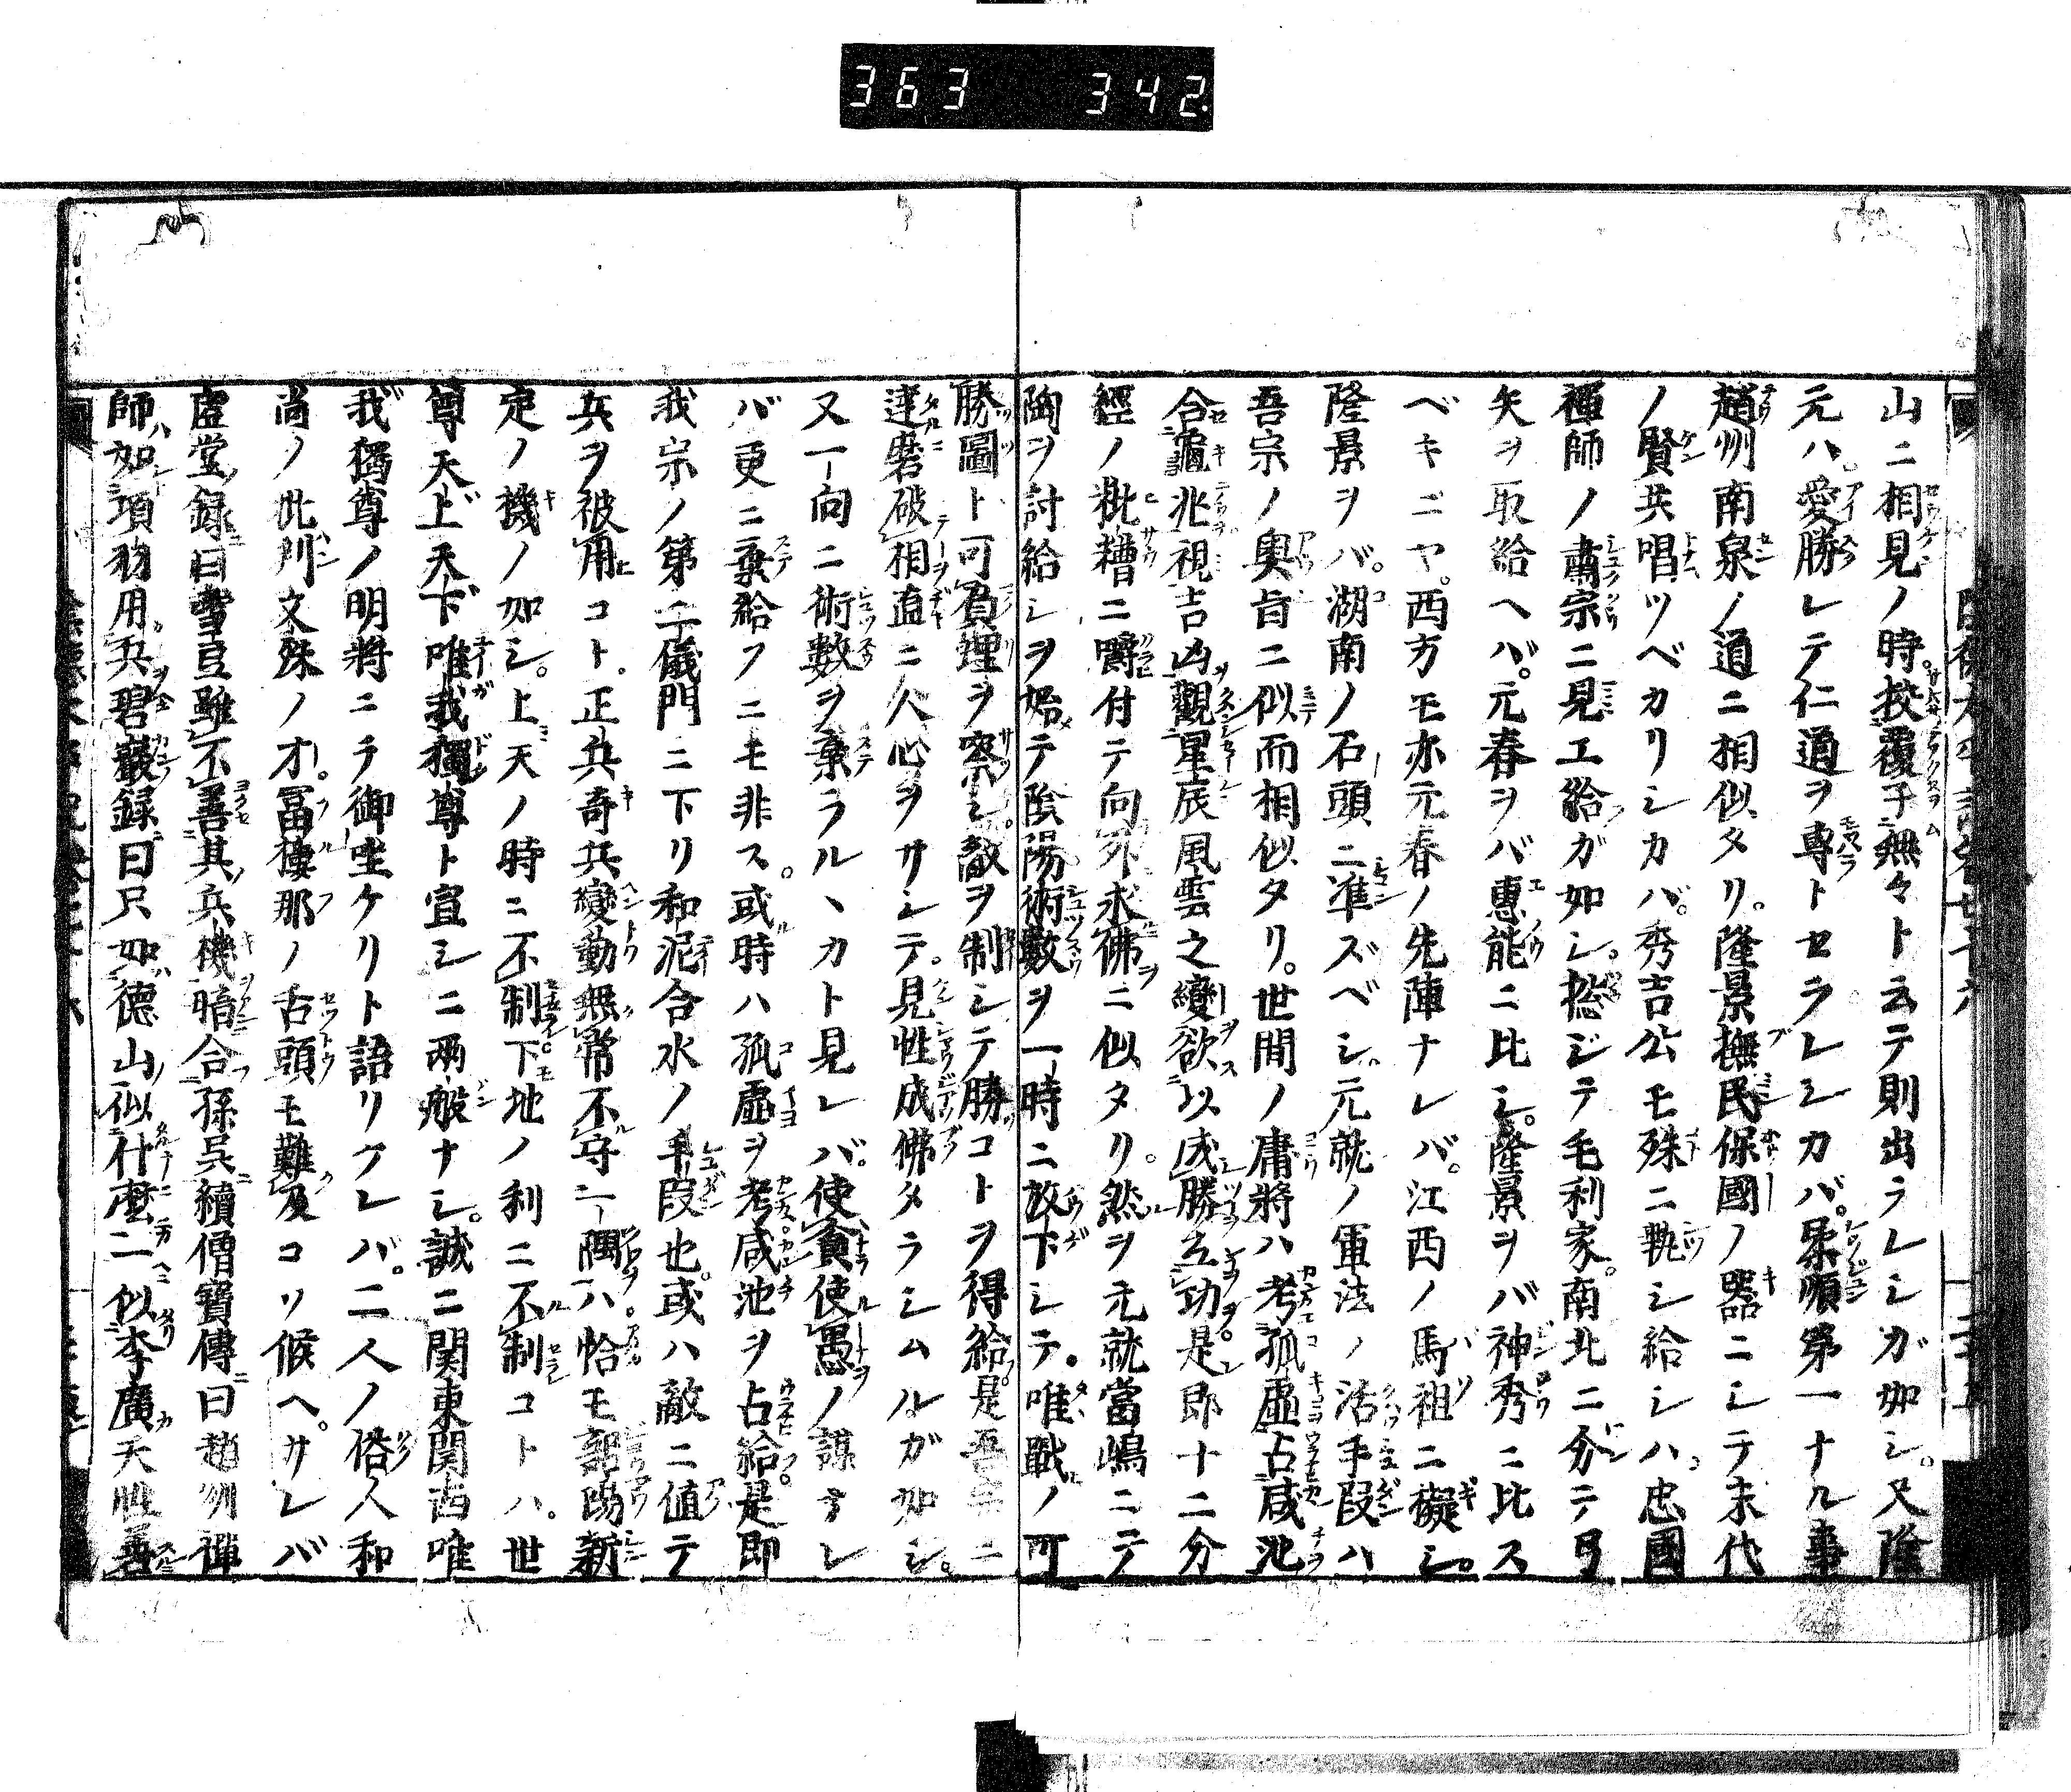 363 342
山ニ相見ノ時投覆子無々ト云テ則出ラレシガ如シ又隆
元ハ愛勝レテ仁道ヲ専トセラレシカバ柔順第一ナル事
趙州南泉ノ道ニ相似タリ隆景撫民保國ノ器ニシテ末代
ノ賢共唱ツベカリシカバ秀吉公モ殊ニ執シ給シハ忠國
禪師ノ肅宗ニ見エ給ガ如シ惣ジテ毛利家南北ニ分テ弓
矢ヲ取給ヘバ元春ヲバ惠能ニ比シ隆景ヲバ神秀ニ比ス
ベキニヤ西方モ亦元春ノ先陣ナレバ江西ノ馬祖ニ擬シ
隆景ヲバ湖南ノ石頭ニ準ズベシ元就ノ軍法ノ活手段ハ
吾宗ノ奥旨ニ似而相似タリ世間ノ庸將ハ考孤虚占咸池
合龜兆視吉凶觀星辰風雲之變欲以成勝立功是即十二分
經ノ粃糟ニ嚼付テ向外求佛ニ似タリ然ヲ元就當嶋ニテ
陶ヲ討給シヲ始テ陰陽術數ヲ一時ニ放下シテ唯戰ノ可
勝圖ト可負理ヲ察シ敵ヲ制シテ勝コトヲ得給是吾宗ニ
達磨破相直ニ人心ヲサシテ見性成佛タラシムルガ如シ
又一向ニ術數ヲ棄ラルヽカト見レバ使貪使愚ノ謀ナレ
バ更ニ棄給フニモ非ス或時ハ孤虚ヲ考咸池ヲ占給是即
我宗ノ第二儀門ニ下リ和泥合水ノ手段也或ハ敵ニ値テ
兵ヲ被用コト正兵奇兵變動無常不守一隅ハ恰モ韶陽新
定ノ機ノ如シ上天ノ時ニ不制下地ノ利ニ不制コトハ世
尊天上天下唯我獨尊ト宣シニ兩般ナシ誠ニ関東関西唯
我獨尊ノ明將ニテ御坐ケリト語リケレバ二人ノ俗人和
尚ノ此門文殊ノ才冨樓那ノ舌頭モ難及コソ候ヘサレバ
虚堂録曰雪豆雖不善其兵機暗合孫呉續僧寶傳曰趙州禪
師如項羽用兵碧巖録曰只如德山似什麼一似李廣天性善